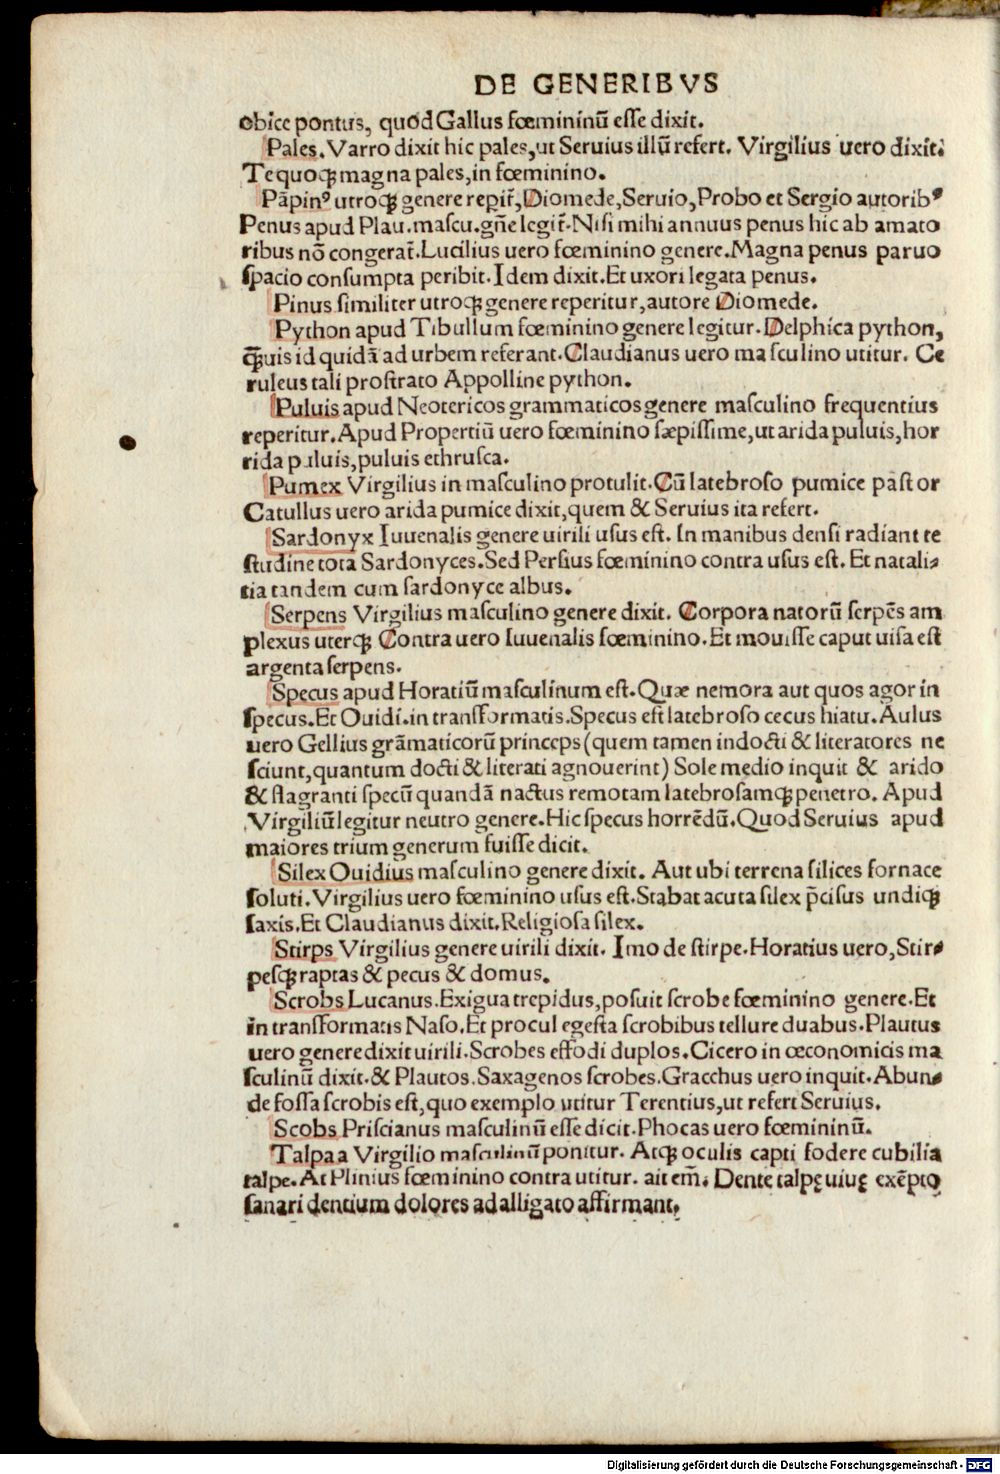 DE GENERIBVS
obice pontus, quod Gallus fœmininū esse dixit.
Pales. Varro dixit hic pales, ut Seruius illū refert. Virgilius uero dixit:
Te quoqꝫ magna pales, in fœminino.
Pāpinꝰ utroqꝫ genere repir̃, Diomede, Seruio, Probo et Sergio autoribꝰ
Penus apud Plau. mascu. gñe legit̃. Nisi mihi annuus penus hic ab amato
ribus nō congerat̃. Lucilius uero fœminino genere. Magna penus paruo
spacio consumpta peribit. Idem dixit. Et uxori legata penus.
Pinus similiter utroqꝫ genere reperitur, autore Diomede.
Python apud Tibullum fœminino genere legitur. Delphica python,
q̄ꝫuis id quidā ad urbem referant. Claudianus uero masculino utitur. Ce
ruleus tali prostrato Appolline python.
Puluis apud Neotericos grammaticos genere masculino frequentius
reperitur. Apud Propertiū uero fœminino sæpissime, ut arida puluis, hor
rida puluis, puluis ethrusca.
Pumex Virgilius in masculino protulit. Cū latebroso pumice pastor
Catullus uero arida pumice dixit, quem & Seruius ita refert.
Sardonyx Iuuenalis genere uirili usus est. In manibus densi radiant te
studine tota Sardonyces. Sed Persius fœminino contra usus est. Et natali⸗
tia tandem cum sardonyce albus.
Serpens Virgilius masculino genere dixit. Corpora natorū serpēs am
plexus uterqꝫ Contra uero Iuuenalis fœminino. Et mouisse caput uisa est
argenta serpens.
Specus apud Horatiū masculinum est. Quæ nemora aut quos agor in
specus. Et Ouidi. in transformatis. Specus est latebroso cecus hiatu. Aulus
uero Gellius grāmaticorū princeps (quem tamen indocti & literatores ne
sciunt, quantum docti & literati agnouerint) Sole medio inquit & arido
& flagranti specū quandā nactus remotam latebrosamqꝫ penetro. Apud
Virgiliū legitur neutro genere. Hic specus horrēdū. Quod Seruius apud
maiores trium generum fuisse dicit.
Silex Ouidius masculino genere dixit. Aut ubi terrena silices fornace
soluti. Virgilius uero fœminino usus est. Stabat acuta silex p̄cisus undiqꝫ
saxis. Et Claudianus dixit. Religiosa silex.
Stirps Virgilius genere uirili dixit. Imo de stirpe. Horatius uero, Stir⸗
pesqꝫ raptas & pecus & domus.
Scrobs Lucanus. Exigua trepidus, posuit scrobe fœminino genere. Et
in transformatis Naso. Et procul egesta scrobibus tellure duabus. Plautus
uero genere dixit uirili. Scrobes effodi duplos. Cicero in œconomicis ma
sculinū dixit. & Plautos. Saxagenos scrobes. Gracchus uero inquit. Abun⸗
de fossa scrobis est, quo exemplo utitur Terentius, ut refert Seruius.
Scobs Priscianus masculinū esse dicit. Phocas uero fœmininū.
Talpa a Virgilio masculinū ponitur. Atqꝫ oculis capti fodere cubilia
talpe. At Plinius fœminino contra utitur. ait em̄. Dente talpę uiuę exēpto
sanari dentium dolores adalligato affirmant.
Digitalisierung gefördert durch die Deutsche Forschungsgemeinschaft - DFG